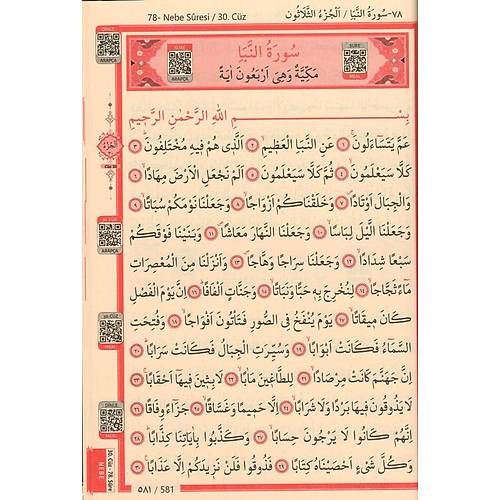 78- Nebe Sûresi / 30. Cüz
٧٨-سُورَةُ النَّبَإِ / اَلْجُزْءُ الثَّلَاثُونَ
DİNLE
ARAPÇA
SURE
ARAPÇA
سُورَةُ النَّبَإِ
مَكِّيَّةٌ وَهِىَ اَرْبَعُونَ اٰيَةً
SURE
MEAL
بِسْمِ اللّٰهِ الرَّحْمٰنِ الرَّحِيمِ
عَمَّ يَتَسَٓاءَلُونَۚ ﴿١﴾ عَنِ النَّبَأِ الْعَظ۪يمِۙ ﴿٢﴾ اَلَّذ۪ى هُمْ ف۪يهِ مُخْتَلِفُونَۜ ﴿٣﴾
كَلَّا سَيَعْلَمُونَۙ ﴿٤﴾ ثُمَّ كَلَّا سَيَعْلَمُونَ ﴿٥﴾ اَلَمْ نَجْعَلِ الْاَرْضَ مِهَادًاۙ ﴿٦﴾
وَالْجِبَالَ اَوْتَادًاۖ ﴿٧﴾ وَخَلَقْنَاكُمْ اَزْوَاجًاۙ ﴿٨﴾ وَجَعَلْنَا نَوْمَكُمْ سُبَاتًاۙ ﴿٩﴾
وَجَعَلْنَا الَّيْلَ لِبَاسًاۙ ﴿١٠﴾ وَجَعَلْنَا النَّهَارَ مَعَاشًاۖ ﴿١١﴾ وَبَنَيْنَا فَوْقَكُمْ
سَبْعًا شِدَادًاۙ ﴿١٢﴾ وَجَعَلْنَا سِرَاجًا وَهَّاجًاۖ ﴿١٣﴾ وَاَنْزَلْنَا مِنَ الْمُعْصِرَاتِ
مَٓاءً ثَجَّاجًاۙ ﴿١٤﴾ لِنُخْرِجَ بِه۪ حَبًّا وَنَبَاتًاۙ ﴿١٥﴾ وَجَنَّاتٍ اَلْفَافًاۜ ﴿١٦﴾ اِنَّ يَوْمَ الْفَصْلِ
كَانَ م۪يقَاتًاۙ ﴿١٧﴾ يَوْمَ يُنْفَخُ فِى الصُّورِ فَتَأْتُونَ اَفْوَاجًاۙ ﴿١٨﴾ وَفُتِحَتِ
السَّمَٓاءُ فَكَانَتْ اَبْوَابًاۙ ﴿١٩﴾ وَسُيِّرَتِ الْجِبَالُ فَكَانَتْ سَرَابًاۜ ﴿٢٠﴾
اِنَّ جَهَنَّمَ كَانَتْ مِرْصَادًاۙ ﴿٢١﴾ لِلطَّاغ۪ينَ مَاٰبًاۙ ﴿٢٢﴾ لَابِث۪ينَ ف۪يهَٓا اَحْقَابًاۚ ﴿٢٣﴾
لَا يَذُوقُونَ ف۪يهَا بَرْدًا وَلَا شَرَابًاۙ ﴿٢٤﴾ اِلَّا حَم۪يمًا وَغَسَّاقًاۙ ﴿٢٥﴾ جَزَٓاءً وِفَاقًاۜ ﴿٢٦﴾
اِنَّهُمْ كَانُوا لَا يَرْجُونَ حِسَابًاۙ ﴿٢٧﴾ وَكَذَّبُوا بِاٰيَاتِنَا كِذَّابًاۜ ﴿٢٨﴾
وَكُلَّ شَىْءٍ اَحْصَيْنَاهُ كِتَابًاۙ ﴿٢٩﴾ فَذُوقُوا فَلَنْ نَز۪يدَكُمْ اِلَّا عَذَابًا۟ ﴿٣٠﴾
اَلْجُزْءُ
ARAPÇA
30. CÜZ
MEAL
DİNLE
MEAL
30. Cüz 78. Sûre
NEBE
٥٨١ / 581